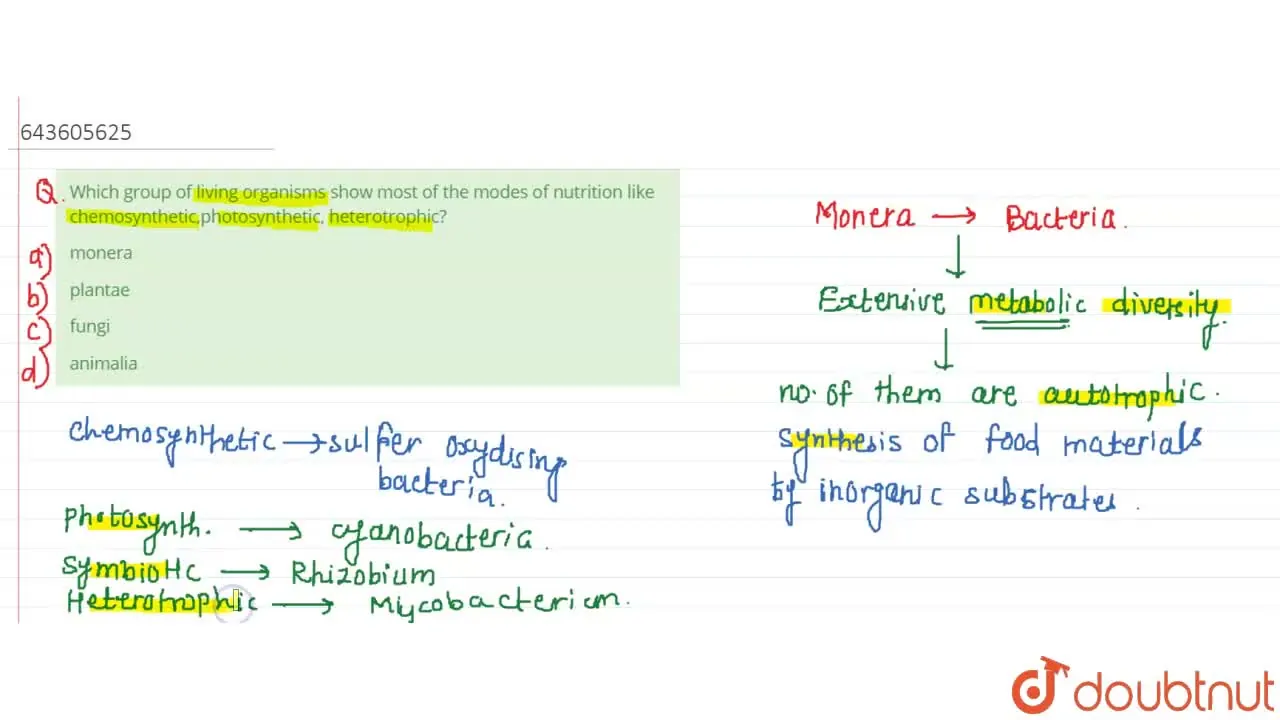 643605625
Q. Which group of living organisms show most of the modes of nutrition like
chemosynthetic,photosynthetic, heterotrophic?
a) monera
b) plantae
c) fungi
d) animalia
chemosynthetic → sulfer oxydising
bacteria.
Photosynth. → cyanobacteria.
Symbiotic → Rhizobium
Heterotrophic → Mycobacterium.
Monera → Bacteria.
↓
Extensive metabolic diversity.
↓
no. of them are autotrophic.
synthesis of food materials
by inorganic substrates.
doubtnut